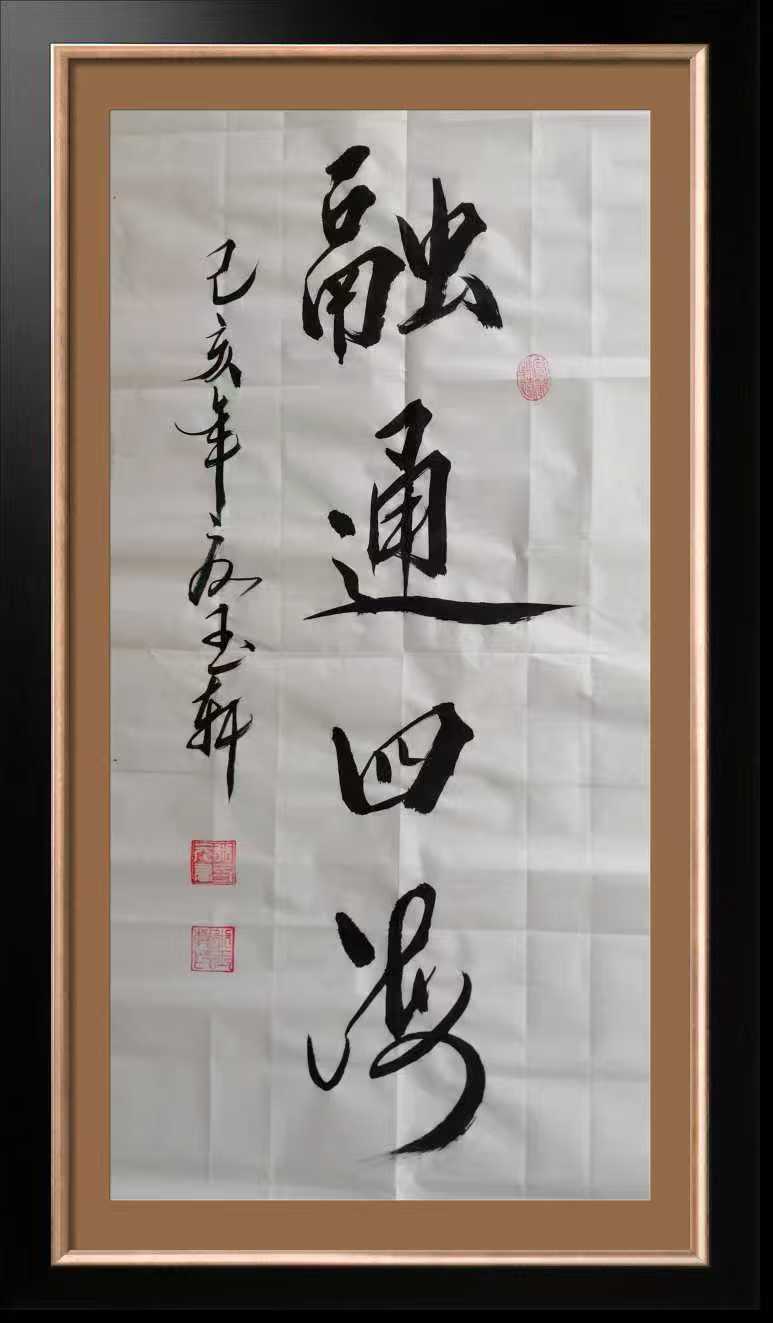 融通四海
己亥年友玉轩